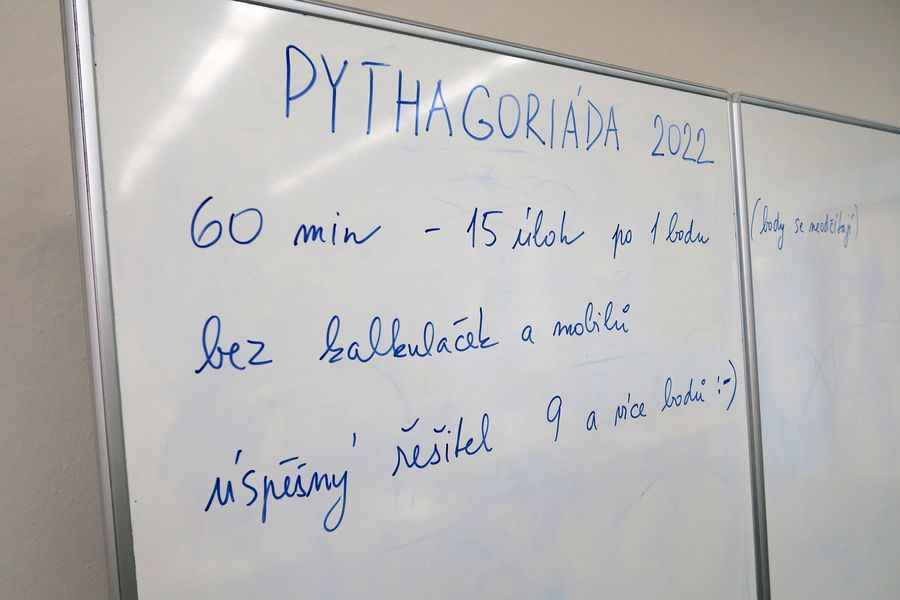 PYTHAGORIÁDA 2022
60 min - 15 úloh po 1 bodu (body se neodčítají)
bez kalkulaček a mobilů
úspěšný řešitel 9 a více bodů :-)